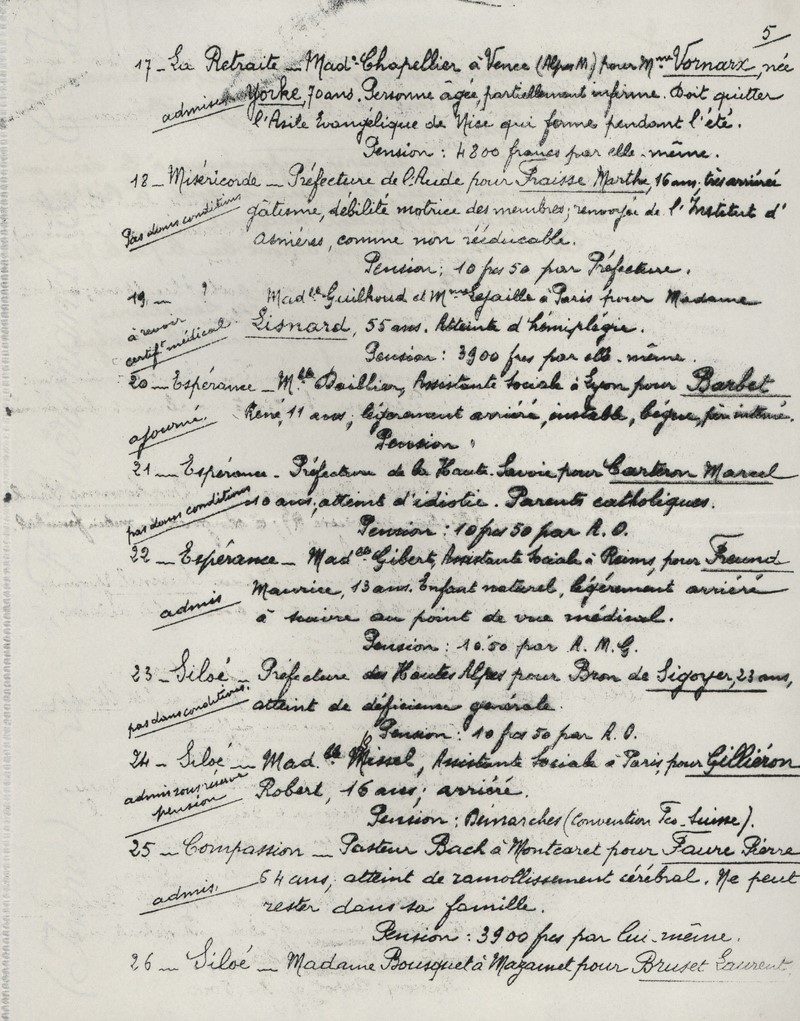 5
17 - La Retraite - Madᵉ Chapellier à Vence (Alpes M.) pour Mᵐᵉ Vornarx, née
admise Yorke, 70 ans. Personne agée, partiellement infirme. Doit quitter
l'Asile Evangélique de Nice qui ferme pendant l'été.
Pension : 4800 francs par elle-même.
18 - Miséricorde - Préfecture de l'Aude pour Fraisse Marthe, 16 ans, très arriérée
Pas dans conditions gâtisme, débilité motrice des membres; renvoyée de l'Institut d'
Asnières, comme non rééducable.
Pension : 10 frs 50 par Préfecture.
19 - ? Madᵉˡˡᵉ Guilhoud et Mᵐᵉ Lejaille à Paris pour Madame
à revoir certifᵗ médical Lisnard, 55 ans. Atteinte d'hémiplégie.
Pension : 3900 frs par elle-même.
20 - Espérance - Mᵉˡˡᵉ Daillier, Assistante Sociale à Lyon pour Barbet
ajourné. René, 11 ans; légèrement arriéré, instable, bègue,
Pension :
21 - Espérance - Préfecture de la Haute-Savoie pour Carteron Marcel
pas dans conditions 10 ans; atteint d'idiotie. Parents catholiques.
Pension : 10 frs 50 par A. O.
22 - Espérance - Madᵉˡˡᵉ Gibert, Assistante Sociale à Reims, pour Freund
admis Maurice, 13 ans. Enfant naturel, légèrement arriéré
à suivre au point de vue médical.
Pension : 10.50 par A. M. G.
23 - Siloé - Préfecture des Hautes Alpes pour Bron de Sigoyer, 23 ans,
pas dans conditions. atteint de déficience générale.
Pension : 10 frs 50 par A. O.
24 - Siloé - Mad.ᵉˡˡᵉ Missel, Assistante Sociale à Paris, pour Gilliéron
admis sous réserve pension Robert, 16 ans; arriéré.
Pension : Démarches (Convention Fco-Suisse).
25 - Compassion - Pasteur Bach à Montcaret pour Faure Pierre
admis. 64 ans, atteint de ramollissement cérébral. Ne peut
rester dans sa famille.
Pension : 3900 frs par lui-même.
26 - Siloé - Madame Bousquet à Mazamet pour Bruset Laurent